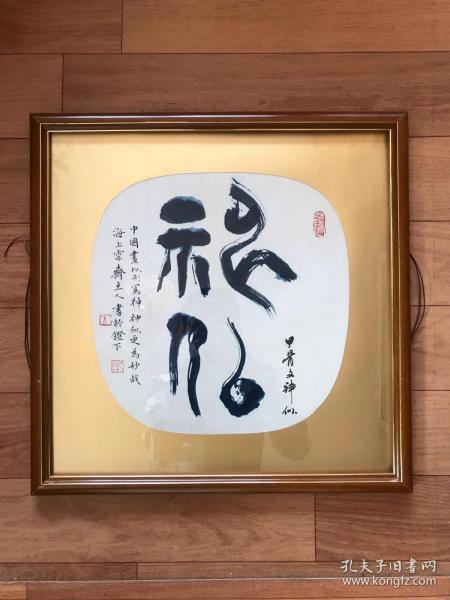 神似
甲骨文神似
中國畫以形寫神神似更為妙哉
海上雲齋主人書於鐙下
孔夫子旧书网
www.kongfz.com